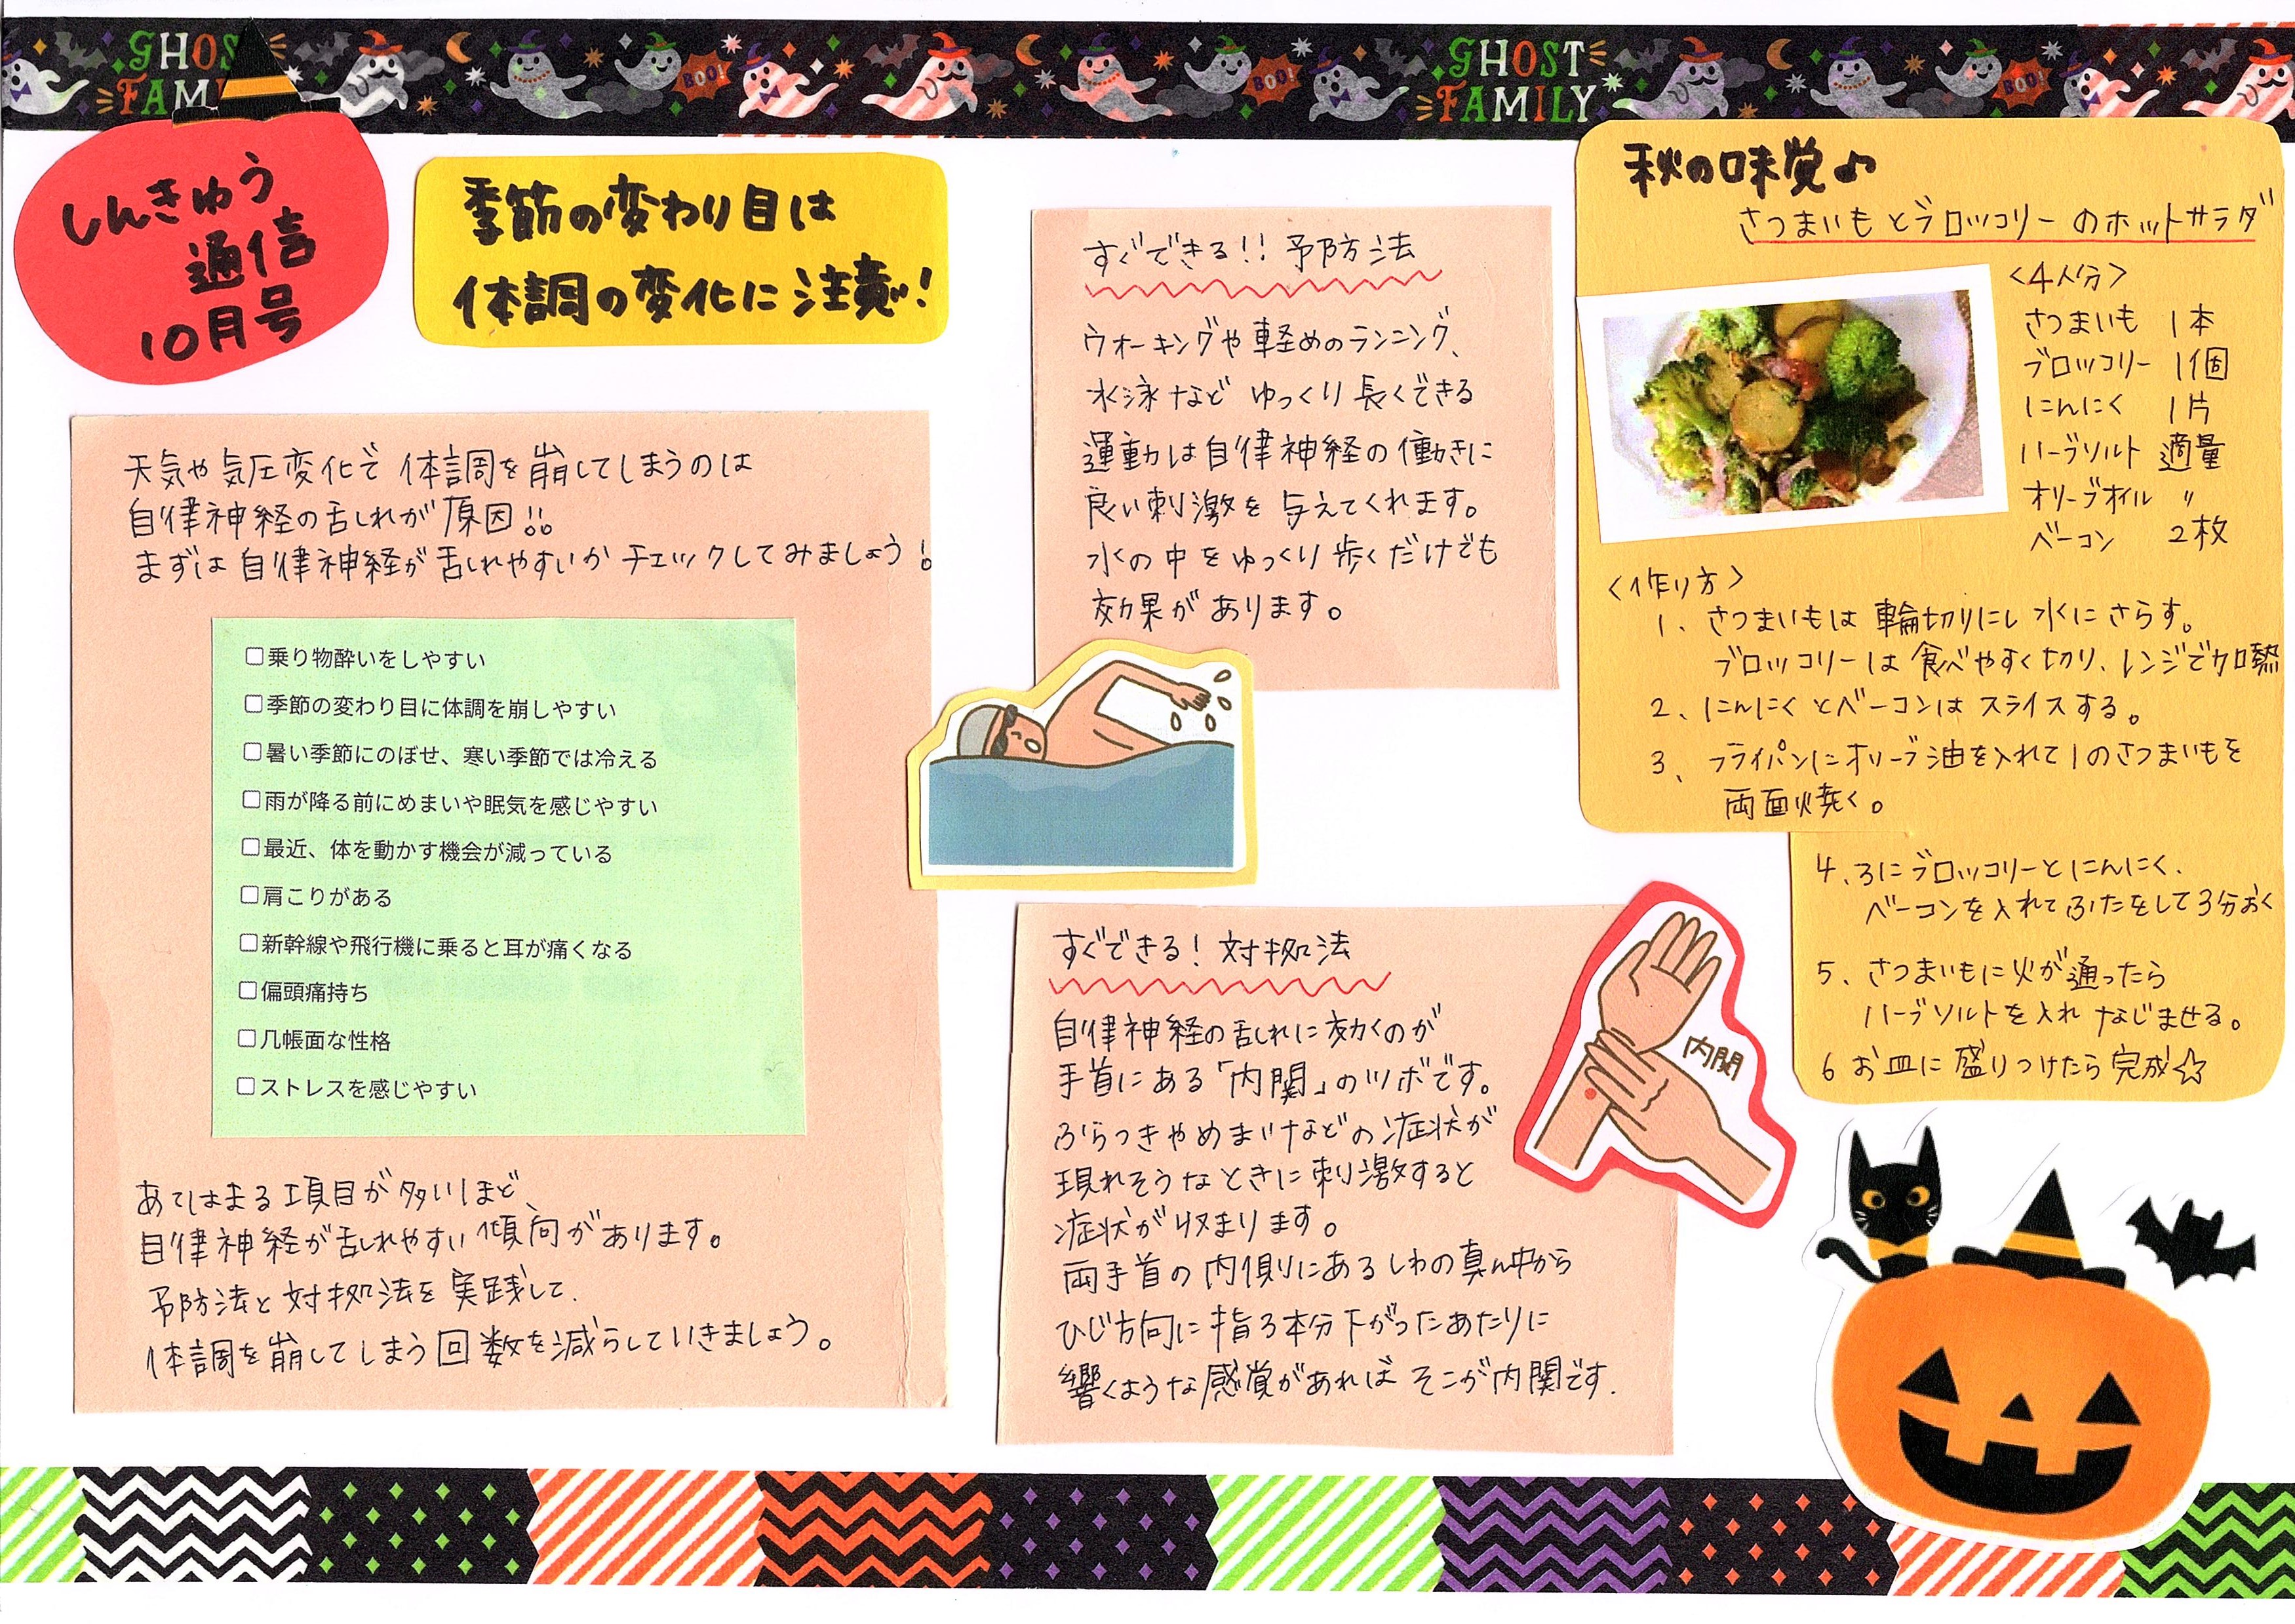 GHOST
FAMILY
BOO!
GHOST
FAMILY
BOO!
BOO!
しんきゅう
通信
10月号
季節の変わり目は
体調の変化に注意!
天気や気圧変化で体調を崩してしまうのは
自律神経の乱れが原因!!
まずは自律神経が乱れやすいかチェックしてみましょう!
□乗り物酔いをしやすい
□季節の変わり目に体調を崩しやすい
□暑い季節にのぼせ、寒い季節では冷える
□雨が降る前にめまいや眠気を感じやすい
□最近、体を動かす機会が減っている
□肩こりがある
□新幹線や飛行機に乗ると耳が痛くなる
□偏頭痛持ち
□几帳面な性格
□ストレスを感じやすい
あてはまる項目が多いほど、
自律神経が乱れやすい傾向があります。
予防法と対処法を実践して、
体調を崩してしまう回数を減らしていきましょう。
すぐできる!! 予防法
ウォーキングや軽めのランニング、
水泳など ゆっくり長くできる
運動は自律神経の働きに
良い刺激を与えてくれます。
水の中をゆっくり歩くだけでも
効果があります。
すぐできる! 対処法
自律神経の乱れに効くのが
手首にある「内関」のツボです。
ふらつきやめまいなどの症状が
現れそうなときに刺激すると
症状が収まります。
両手首の内側にあるしわの真ん中から
ひじ方向に指3本分下がったあたりに
響くような感覚があればそこが内関です。
内関
秋の味覚♪
さつまいもとブロッコリーのホットサラダ
<4人分>
さつまいも 1本
ブロッコリー 1個
にんにく 1片
ハーブソルト 適量
オリーブオイル 〃
ベーコン 2枚
<作り方>
1、さつまいもは輪切りにし水にさらす。
ブロッコリーは食べやすく切り、レンジで加熱
2、にんにくとベーコンはスライスする。
3、フライパンにオリーブ油を入れて1のさつまいもを
両面焼く。
4、3にブロッコリーとにんにく、
ベーコンを入れてふたをして3分おく
5、さつまいもに火が通ったら
ハーブソルトを入れ なじませる。
6 お皿に盛りつけたら完成☆